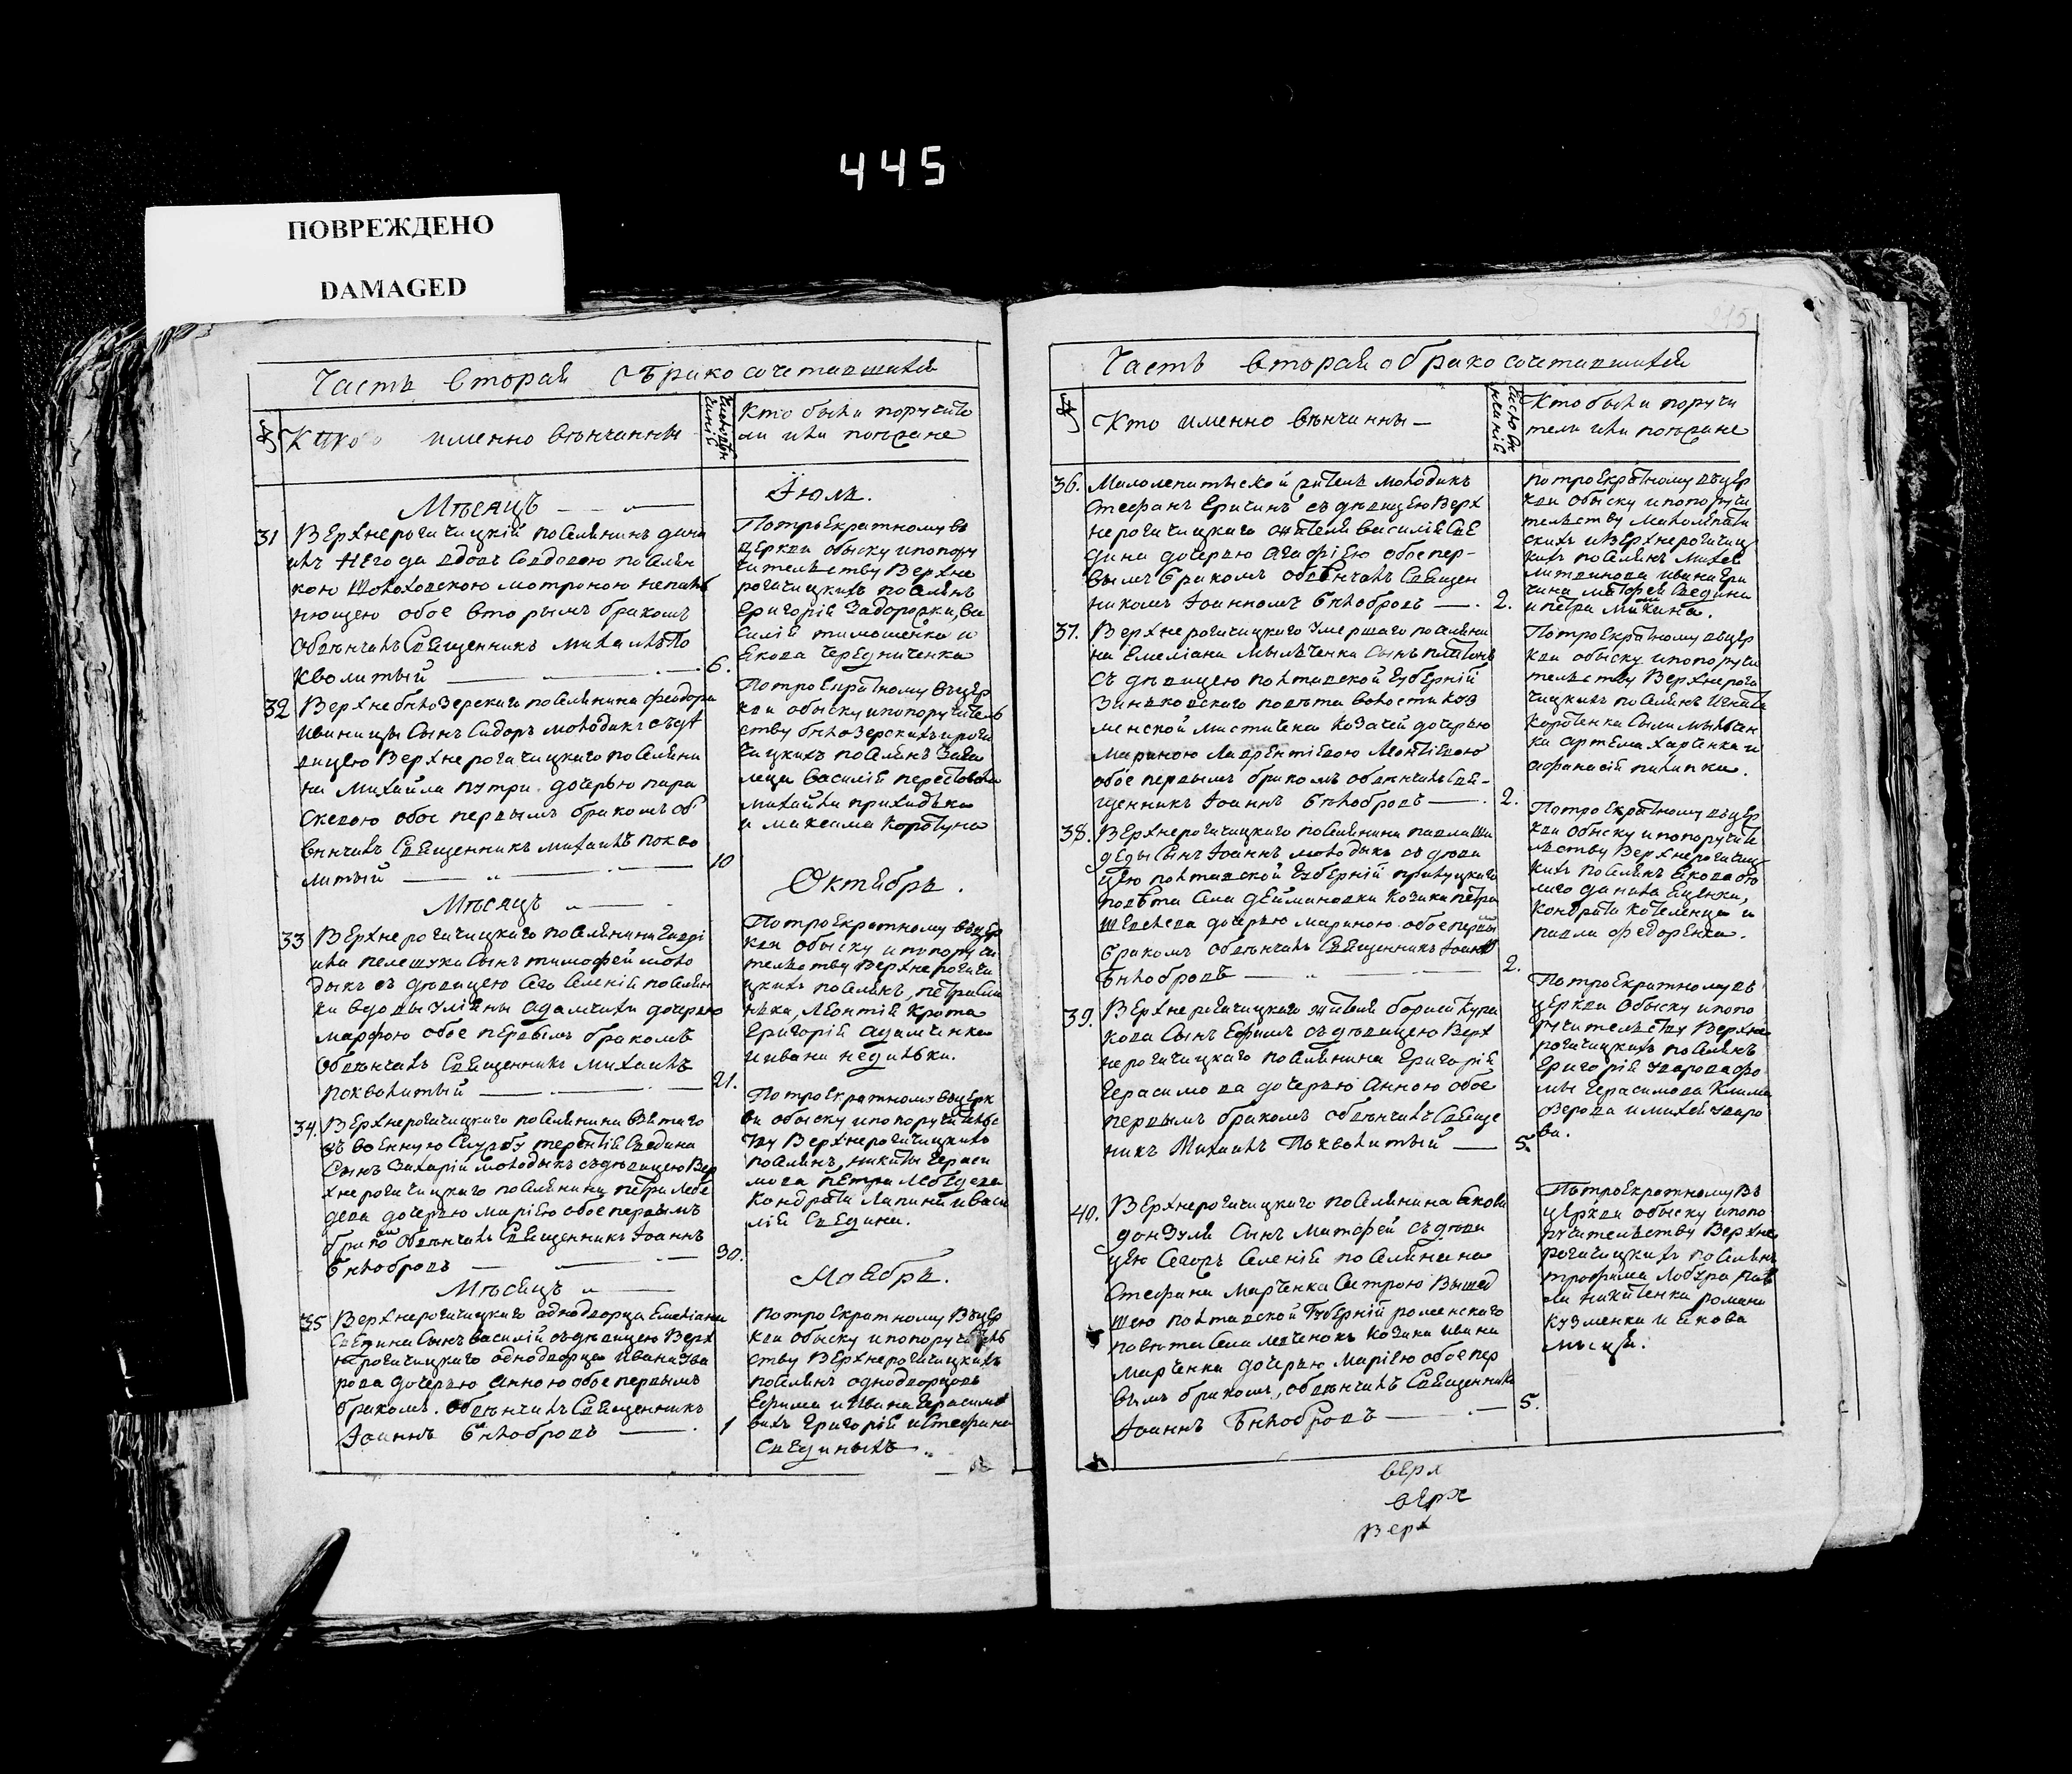 445
ПОВРЕЖДЕНО
DAMAGED
Часть вторая о бракосочетавшихся
№
Кто именно вѣнчанны
Кто были поручите
ли или поѣзжане
Мѣсяцъ
Іюль.
31
Верхнерогачицкій поселянинъ Дани
илъ Негода вдовъ совдовою поселян
кою Шолоховскою Мотроною
нющею обое вторымъ бракомъ
обвѣнчалъ Священникъ Михаилъ По
кволитый
6.
Потроекратному въ
церкви обыску ипопору
чительству Верхне
рогачицкихъ поселянъ
Григорія Задорожки, Ва
силія Тимошенка и
Якова Чередниченка
32
Верхнебѣлозерскаго поселянина Феодора
Иваницы Сынъ Сидоръ молодикъ съдѣ
вицею Верхнерогачицкаго поселяни
на Михаила дочерью Пара
скевою обое первымъ бракомъ об
вѣнчалъ Священникъ Михаилъ Покво
литый
10
Потроекратному въцер
кви обыску ипопоручитель
ству бѣлозерскихъ ирога
чицкихъ поселянъ
Василія
Михайла Приходька
и Максима Коротуна
Мѣсяцъ
Октябрь.
33
Верхнерогачицкаго поселянина Гаврі
ила Пелешука Сынъ Тимофей моло
дыкъ съ дѣвицею Сего Селенія поселян
ки вдовы Уліяны Адамчихи дочерью
Марфою обое первымъ бракомъ
обвѣнчалъ Священникъ Михаилъ
Поквалитый
21.
Потроекратному въцер
кви обыску ипопоручи
тельству Верхнерогачи
цкихъ поселянъ, Петра
Леонтія Крота
Григорія Адамченка
иИвана Недильки.
34.
Верхнерогачицкаго поселянина взятаго
въ военную Службу Терентія Сведина
Сынъ Захарій молодыкъ съдѣвицею Вер
хнерогачицкаго поселянина Петра Лебе
дева дочерью Маріею обое первымъ
бракомъ обвѣнчалъ Священникъ Іоаннъ
Бѣлобровъ
30.
Потроекратному въцерк
ви обыску ипопоручительс
тву Верхнерогачицкихъ
поселянъ, Никиты Гераси
мова Петра Лебедева
Кондрата Лапина иВаси
лія Сведина.
Мѣсяцъ
Ноябрь.
35
Верхнерогачицкаго однодворца Емеліана
Сведина Сынъ Василій съдѣвицею Верх
нерогачицкаго однодворца Ивана Ува
рова дочерью Анною обое первымъ
бракомъ. Обвѣнчалъ Священникъ
Іоаннъ Бѣлобровъ
1
Потроекратному въцер
кви обыску ипопоручитель
ству Верхнерогачицкихъ
поселянъ однодворцовъ
Ефима иИвана Герасимо
выхъ Григорія иСтефана
Свединыхъ
Часть вторая о бракосочетавшихся
№
Кто именно вѣнчанны
Кто были поручи
тели или поѣзжане
36.
Малолепатыской житель молодикъ
Стефанъ Еричинъ съдѣвицею Верх
нерогачицкаго жителя Василія Све
дина дочерью Агафіею обое пер-
вымъ бракомъ обвѣнчалъ Священ
никомъ Іоанномъ Бѣлобровъ
2.
Потроекратному въцер
кви обыску ипопоручи
тельству Малолепаты
скихъ иВерхнерогачиц
кихъ поселянъ Михея
Литвинова Ивана Ери
чина Матфея Сведина
и Петра Микина.
37.
Верхнерогачицкаго Умершаго поселяни
на Емеліана Мыльченка Сынъ Платонъ
съ дѣвицею Полтавской Губерніи
Зиньковскаго повѣта волости
менской Козачей дочерью
Мариною Лаврентіевою Леонтіевою
обое первымъ бракомъ обвѣнчалъ Свя-
щенникъ Іоаннъ Бѣлобровъ
2.
Потроекратному въцер
кви обыску ипопоручи
тельству Верхнерога
чицкихъ поселянъ Игната
Коротенка Мыльчен
ка Артема Харченка и
Афанасія Пилипка.
38.
Верхнерогачицкаго поселянина Павла Ша
деды Сынъ Іоаннъ молодыкъ съ дѣви
цею Полтавской Губерніи Прилуцкаго
повѣта Села Деймановки Козака Петра
Шевелева дочерью Мариною обое первы
бракомъ обвѣнчалъ Священникъ Іоаннъ
Бѣлобровъ
2.
Потроекратному въцер
кви обыску ипопоручите
льству Верхнерогачиц
кихъ поселянъ Якова
Данила Ященка,
Кондрата Котеленца и
Павла Федоренка.
39.
Верхнерогачицкаго жителя Бориса Кура
кова Сынъ Ефимъ съдѣвицею Верх
нерогачицкаго поселянина Григорія
Герасимова дочерью Анною обое
первымъ бракомъ обвѣнчалъ Свяще
никъ Михаилъ Поквалитый
5.
Потроекратному въ
церкви обыску ипопо
ручительству Верхне
рогачицкихъ поселянъ
Григорія Уварова Фо
мы Герасимова Клима
Зерова иМихея Уваро
ва.
40.
Верхнерогачицкаго поселянина Якова
Донзули Сынъ Матфей съ дѣви
цею Сегожъ Селенія поселянина
Стефана Марченка Сестрою Вышед
шею Полтавской Губерніи Роменскаго
повѣта Села Левченокъ Козака Ивана
Марченка дочерью Маріею обое пер
вымъ бракомъ, обвѣнчалъ Священникъ
Іоаннъ Бѣлобровъ
5.
Потроекратному въ
церкви обыску ипопо
ручительству Верхне
рогачицкихъ поселянъ
Трофима Лобура Пав
ла Никитенка Романа
Кузменка и Якова
Мысця.
верх
верх
Верх